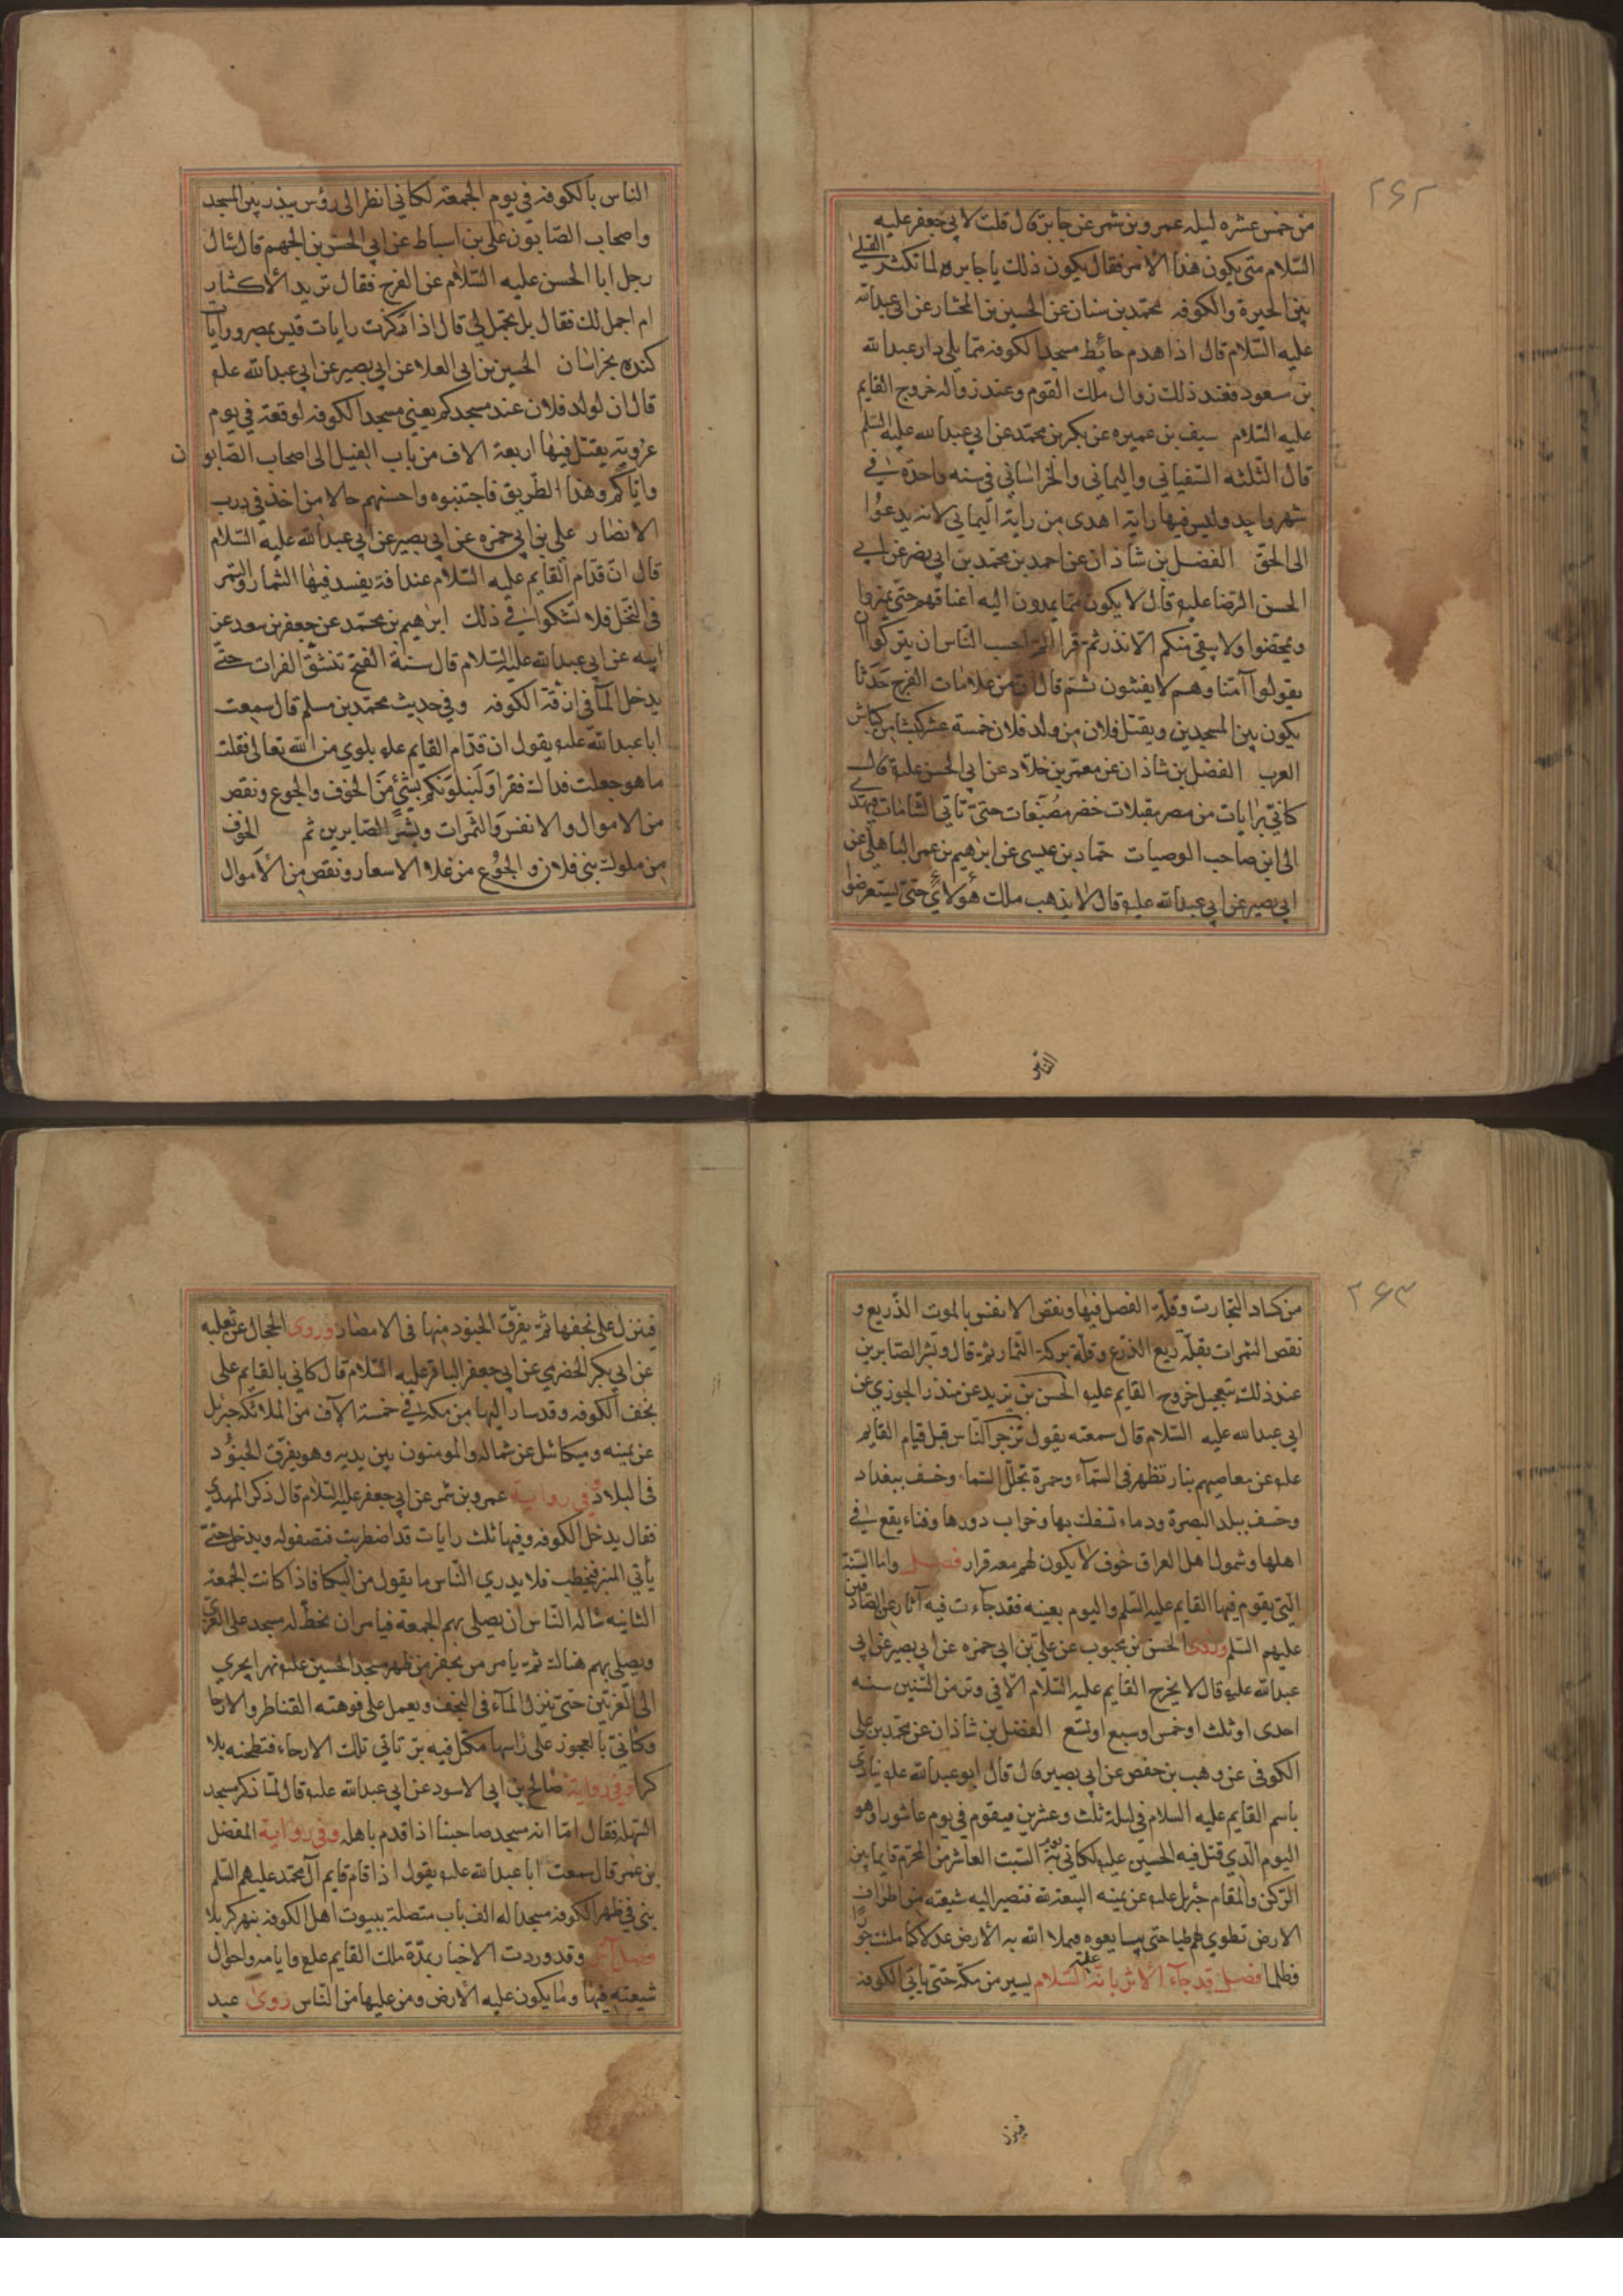 ٢٦٢
من خمس عشره ليله عمرو بن شمر عن جابر قال قلت لابي جعفر عليه
السّلام متى يكون هذا الامر فقال يكون ذلك يا جابر و لما تكثر القتلى
بين الحيرة والكوفه محمّد بن سنان عن الحسين بن المختار عن ابى عبد الله
عليه السّلام قال اذا هدم حائط مسجد الكوفه ممّا يلى دار عبد الله
بن سعود فعند ذلك زوال ملك القوم وعند زواله خروج القايم
عليه السّلام سيف بن عميره عن بكر بن محمّد عن ابي عبد الله عليه السّلم
قال الثّلثه السّفياني واليماني والخراسانى فى سنه واحدة في
شهر واحد وليس فيها راية اهدى من راية اليماني لانه يدعوُا
الى الحقّ الفضل بن شاذان عن احمد بن محمّد بن ابى نصر عن ابي
الحسن الرّضا عليه قال لا يكون ممّا يمدون اليه اعناقهم حتى تميزوا
وتمحّضوا ولا يبقى منكم الّا نذر ثم قرا الم احسب النّاس ان يتركوا ان
يقولوا آمنّا وهم لا يفتنون ثم قال انّ من علامات الفرج حَدَثا
يكون بين المسجدين ويقتل فلان من ولد فلان خمسة عشر كبشا من كباش
العرب الفضل بن شاذان عن معمّر بن خلّاد عن ابي الحسن عليه قال
كانّي برايات من مصر مقبلات خضر مصبّغات حتى تأتي الشّامات فتهدى
الى ابن صاحب الوصيات حمّاد بن عيسى عن ابرهيم بن عمر اليماهلى عن
ابي بصير عن ابي عبد الله عليه قال لا يذهب ملك هؤلاي حتى يستعرضوا
الناس
الناس بالكوفه في يوم الجمعة لكاني انظر الى رؤس يبذر بين المسجد
واصحاب الصّابون على بن اسباط عن ابي الحسن بن الجهم قال سئال
رجل ابا الحسن عليه السّلام عن الفرج فقال تريد الأكثار
ام اجمل لك فقال بل تجمل لي قال اذا تحركت رايات قيس بمصر ورايات
كنده بخراسان الحسين بن ابى العلا عن ابي بصير عن ابي عبد الله علم
قال ان لولد فلان عند مسجدكم يعني مسجد الكوفه لوقعة في يوم
عروبة يقتل فيها اربعة الاف من باب الفيل الى اصحاب الصّابون
واياكم وهذا الطّريق فاجتنبوه واحسنهم حالا من اخذ فى درب
الانصار على بن ابي حمزه عن ابي بصير عن ابي عبد الله عليه السّلام
قال انّ قدّام القايم عليه السّلام عندافة يفسد فيها الثمار والتمر
فى النّخل فلا تشكوا في ذلك ابرهيم بن محمّد عن جعفر بن سعد عن
ابيه عن ابى عبد الله عليه السّلام قال سنة الفتح تنشقّ الفرات حتّى
يدخل المآ فى ازقّة الكوفه وفي حديث محمّد بن مسلم قال سمعت
ابا عبد الله عليه يقول ان قدّام القايم علم بلوي من الله تعالى فقلت
ما هو جعلت فداك فقرا ولنبلونّكم بشئ من الخوف والجوع ونقص
من الاموال والانفس والثّمرات وبشّر الصّابرين ثم الخوف
من ملوك بنى فلان والجوع من غلا الاسعار ونقص من الأموال
٢٦٣
من كساد التجارت وقلّة الفضل فيها ونقص الانفس بالموت الذّريع و
نقص الثمرات بقلّه ريع الذرع وقلّة بركة الثّمار ثم قال وبشر الصّابرين
عند ذلك بتعجيل خروج القايم عليه الحسن بن يزيد عن منذر الجوزي عن
ابي عبد الله عليه السّلام قال سمعته يقول تزجر النّاس قبل قيام القايم
علم عن معاصيهم بنار تظهر فى السّمآء وحمرة تجلّل السّما وخسف ببغداد
وخسف ببلد البصرة ودماء تسفك بها وخراب دورها وفناء يقع في
اهلها وشمول اهل العراق خوف لا يكون لهم معه قرار فصل وامّا السّنة
الّتي يقوم فيها القايم عليه السّلم واليوم بعينه فقد جآءت فيه آثار عن الصّادقين
عليهم السّلم روى الحسن بن محبوب عن علىّ بن ابى حمزه عن ابي بصير عن ابي
عبد الله عليه قال لا يخرج القايم عليه السّلام الّا في وتر من السّنين سنه
احدى او ثلث او خمس او سبع او تسع الفضل بن شاذان عن محمّد بن على
الكوفى عن وهب بن حفص عن ابى بصير قال قال ابو عبد الله علم ينادي
باسم القايم عليه السلام في ليلة ثلث وعشرين ويقوم في يوم عاشورا وهو
اليوم الّذي قتل فيه الحسين عليه لكاني به يوم السّبت العاشر من المحرّم قايما بين
الرّكن والمقام جبرئيل علم عن يمينه البيعة لله فتصير اليه شيعته من اطراف
الارض تطوى لهم طيا حتى يبايعوه فيملا الله به الأرض عدلا كما ملئت جورا
وظلما فصل قد جآء الأثر بانّه عليه السّلام يسير من مكّة حتى ياتي الكوفه
فينزل
فينزل على نجفها ثم يفرّق الجنود منها فى الامصار وروى الحجال عن ثعلبه
عن ابى بكر الحضرمي عن ابي جعفر الباقر عليه السّلام قال كاني بالقايم على
نجف الكوفه وقد سار اليها من مكه في خمسة الآف من الملائكه جبرئيل
عن يمينه وميكائل عن شماله والمومنون بين يديه وهو يفرّق الجنوُد
فى البلاد وفى رواية عمرو بن شمر عن ابي جعفر عليه السّلام قال ذكر المهدي
فقال يدخل الكوفه وفيها ثلث رايات قد اضطربت فتصفوله ويدخل حتى
يأتي المنبر فيخطب فلا يدري النّاس ما يقول من البكا فاذا كانت الجمعة
الثانيه ساله النّاس ان يصلى بهم الجمعة فيامر ان يخطّ له مسجد على الغري
ويصلى بهم هناك ثم يامر من يحفر من ظهر مسجد الحسين عليه نهرا يجري
الى الغريّين حتى ينزل المآء فى النجف ويعمل على فوهته القناطر والارحا
وكأنّي بالعجوز على رأسها مكتل فيه برّ تاتي تلك الارحاء فتطحنه بلا
كرا وفى رواية صالح بن ابى الاسود عن ابى عبد الله عليه قال لمّا ذكر مسجد
السّهله فقال امّا انه مسجد صاحبنا اذا قدم باهله وفى رواية المفضل
بن عمر قال سمعت ابا عبد الله علم يقول اذا قام قايم آل محمّد عليهم السّلم
بنى في ظهر الكوفه مسجدا له الف باب متصلة ببيوت اهل الكوفه بنهر كربلا
فصل آخر وقد وردت الاخبار بمدّة ملك القايم علم وايامه واحوال
شيعته فيها وما يكون عليه الأرض ومن عليها من النّاس روى عبد